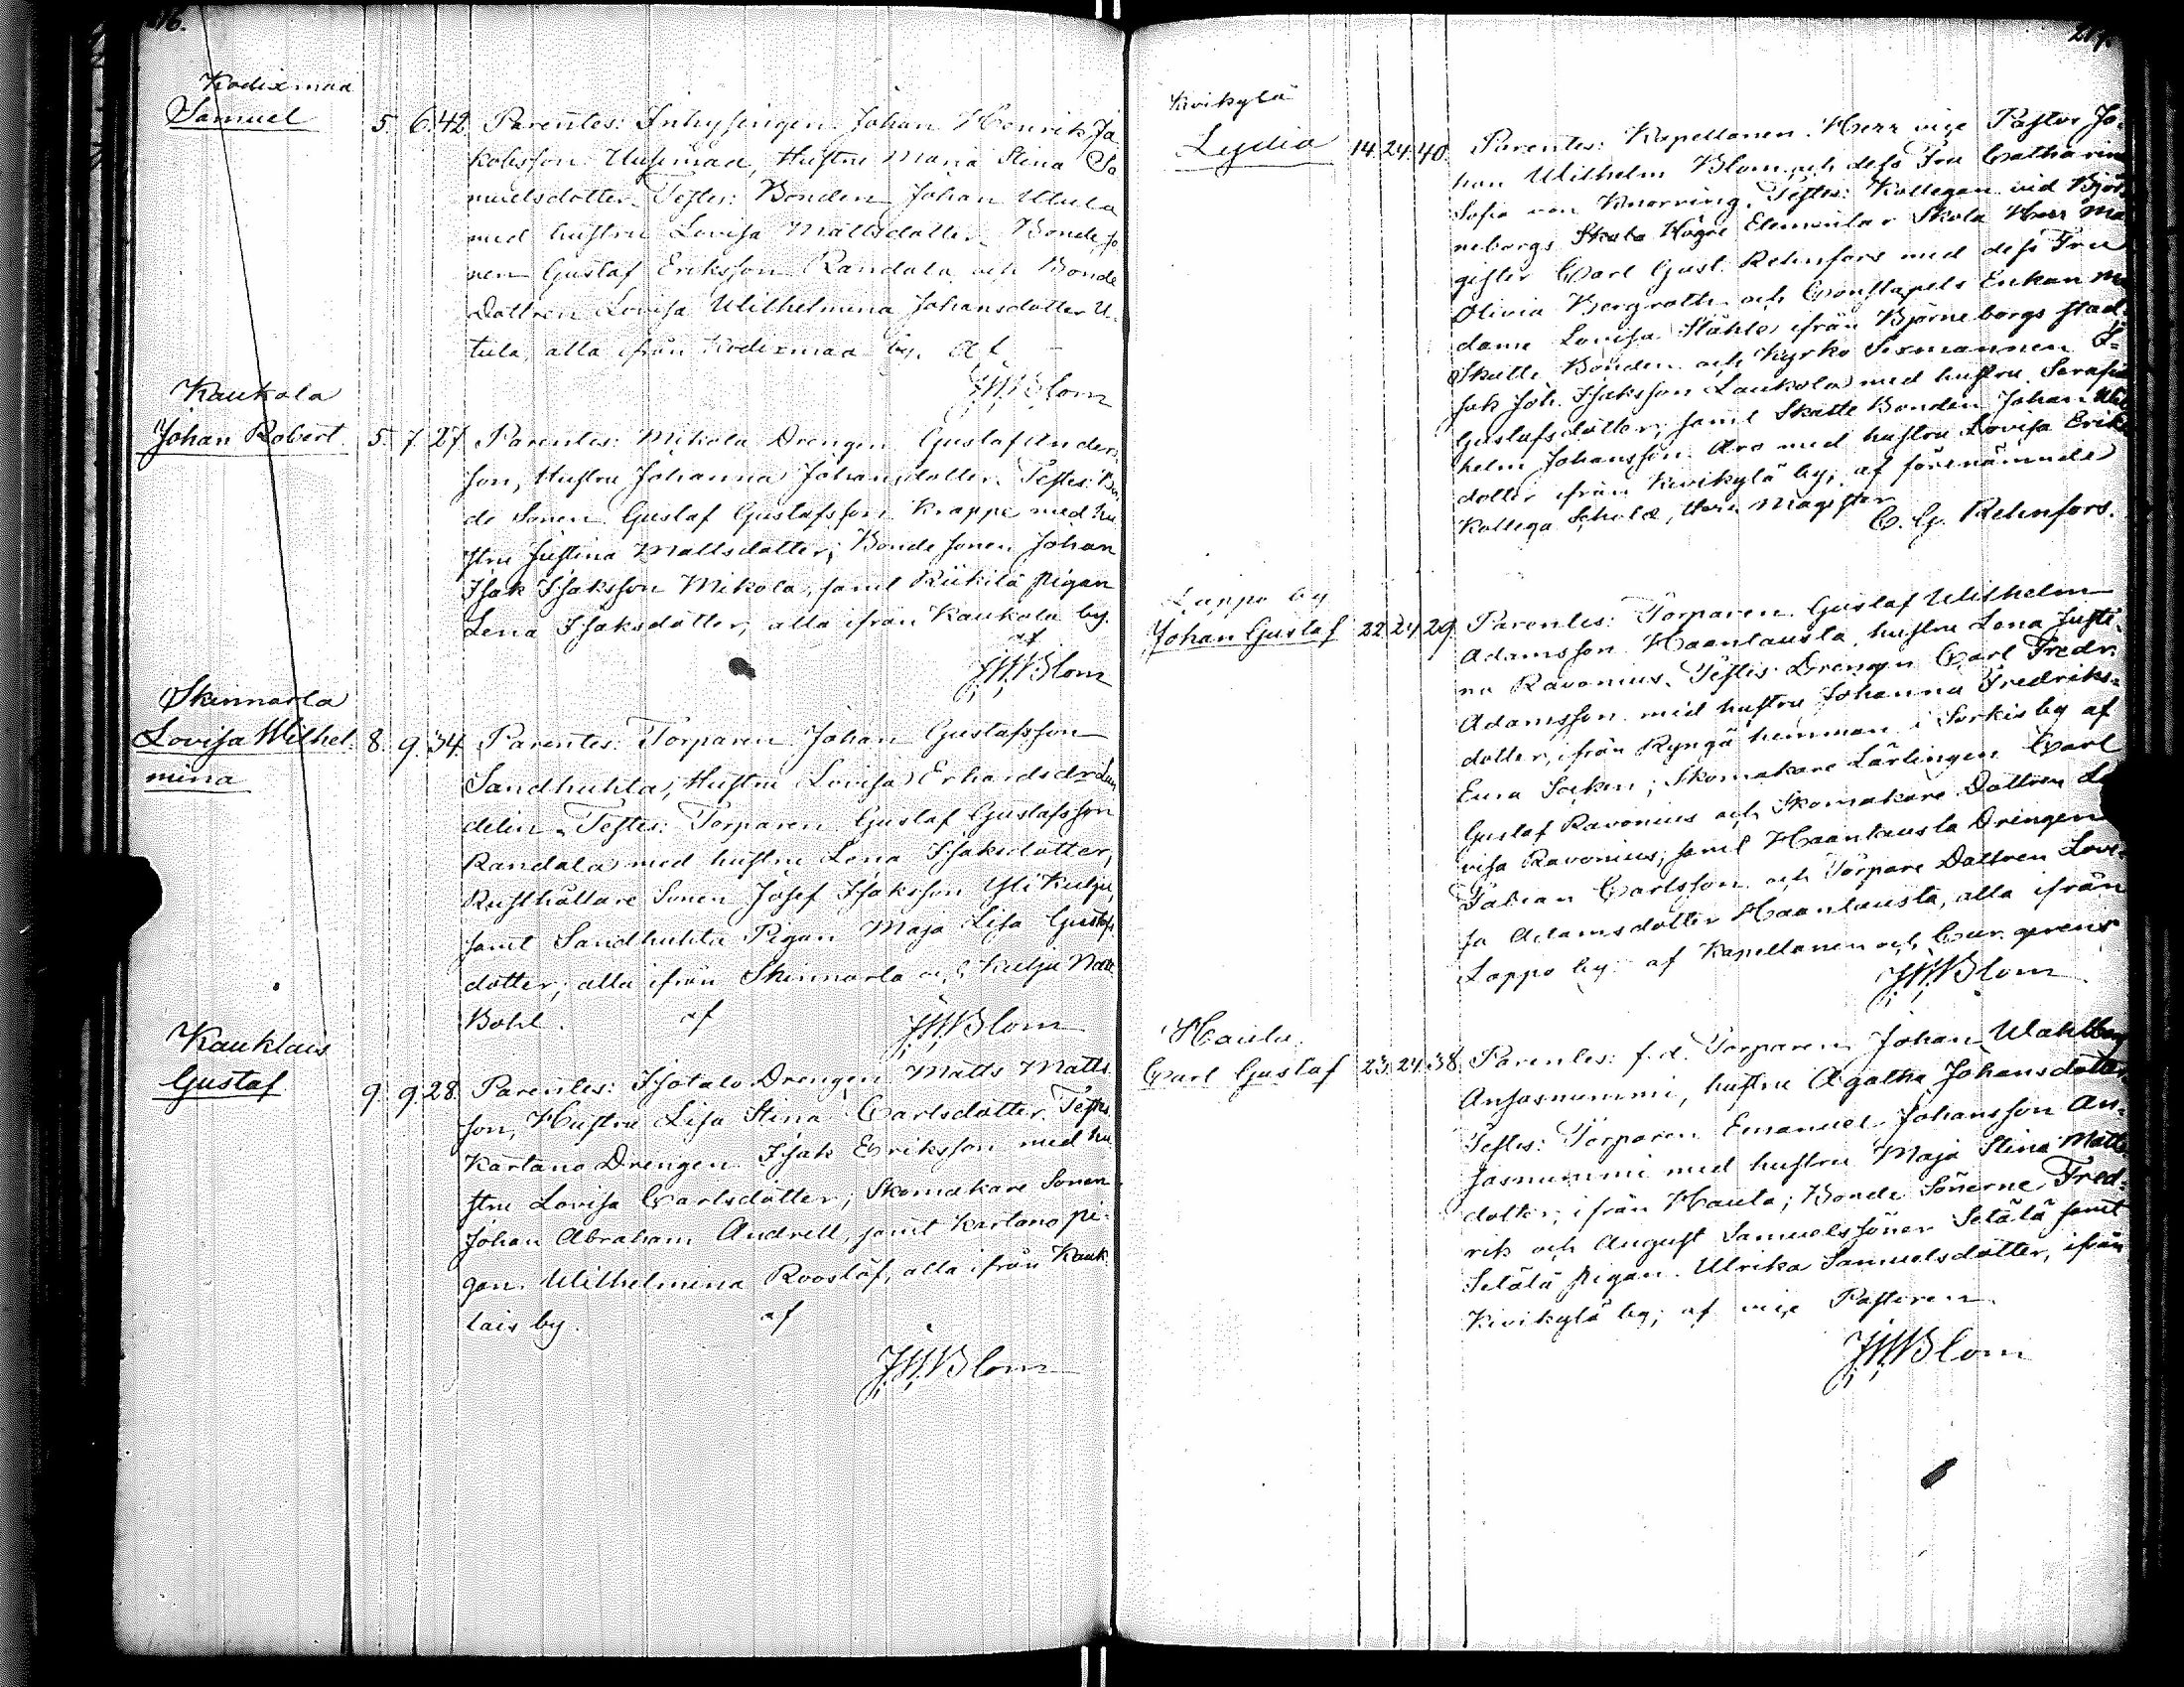 Kodixmaa
Samuel 5. 6. 42. Parentes: Inhysingen Johan Henrik Ja
kobsson Uusimaa, Hustru Maria Stina Sa
muelsdotter. Testes: Bonden Johan Utula
med hustru Lovisa Mattsdotter, Bondeso
nen Gustaf Eriksson Randala och Bonde
Dottren Lovisa Wilhelmina Johansdotter U.
tula, alla ifrån Kodixmaa by. Af
J.W.Blom
Kaukola
Johan Robert. 5. 7. 27. Parentes: Mikola Drengen Gustaf Anders
son, Hustru Johanna Johansdotter. Testes: Bon
de Sonen Gustaf Gustafsson Krappe med hu
stru Justina Mattsdotter; Bonde sonen Johan
Isak Isaksson Mikola, samt Riikilä pigan
Lena Isaksdotter, alla ifrån Kaukola by.
af
J.W.Blom
Skinnarla
Lovisa Wilhel. 8. 9. 34. Parentes: Torparen Johan Gustafsson
mina
Sandhuhta, Hustru Lovisa Erhardsdr Lun
delin. Testes: Torparen Gustaf Gustafsson
Randala med hustru Lena Isaksdotter,
Rusthållare Sonen Josef Isaksson Yli Kulju,
samt Sandhuhta Pigan Maja Lisa Gustafs
dotter; alla ifrån Skinnarla och Kulju
Bohl. af J.W.Blom
Kauklais
Gustaf 9. 9. 28. Parentes: Isotalo Drengen Matts Matts
son, Hustru Lisa Stina Carlsdotter. Testes
Kartano Drengen Isak Eriksson med hu
stru Lovisa Carlsdotter; Skomakare Sonen
Johan Abraham Andrell, samt Kartano pi-
gan Wilhelmina Rooslöf, alla ifrån Kauk
lais by. af
J.W.Blom
217.
Kivikylä
Lydia 14. 24. 40. Parentes: Kapellanen Herr vice Pastor Jo-
han Wilhelm Blom och dess Fru Catharina
Sofia von Knorring. Testes: Kollegan vid Björ
neborgs Skola Högre Elementar Skola Herr Ma
gister Carl Gust. Rehnfors med dess Fru
Olivia Bergroth och Constapels Enkan Ma
dame Lovisa Ståhle, ifrån Björneborgs stad
Skatte Bonden och Kyrko Sexmannen I-
sak Joh. Isaksson Laukola med hustru Serafia
Gustafsdotter, samt Skatte Bonden Johan Wil
helm Johansson Aro med hustru Lovisa Eriks
dotter ifrån Kivikylä by; af förenämnde
Kollega Scholæ, Herr Magister
C. G. Rehnfors.
Lappo by
Johan Gustaf 22. 24. 29. Parentes: Torparen Gustaf Wilhelm
Adamsson Haanlausta hustru Lena Justi-
na Ravonius. Testes: Drengen Carl Fredr.
Adamsson med hustru Johanna Fredriks-
dotter, ifrån Kyngä hemman i Sorkis by af
Eura Socken; Skomakare Lärlingen Carl
Gustaf Ravonius och Skomakare Dottren Lo
visa Ravonius; samt Haanlausta Drengen
Fabian Carlsson och Torpare Dottren Lovi-
sa Adamsdotter Haanlausta, alla ifrån
Lappo by: af Kapellanen och Cur. gerens
J.W.Blom
Haula.
Carl Gustaf 23. 24. 38. Parentes: f.d. Torparen Johan Wahlberg
Ansasnummi, hustru Agatha Johansdotter.
Testes: Torparen Emanuel Johansson An-
sasnummi med hustru Maja Stina Matts
dotter, ifrån Haula; Bonde Sönerne Fred-
rik och August Samuelssöner Setälä samt
Setälä pigan Ulrika Samuelsdotter, ifrån
Kivikylä by; af vice Pastoren
J.W.Blom